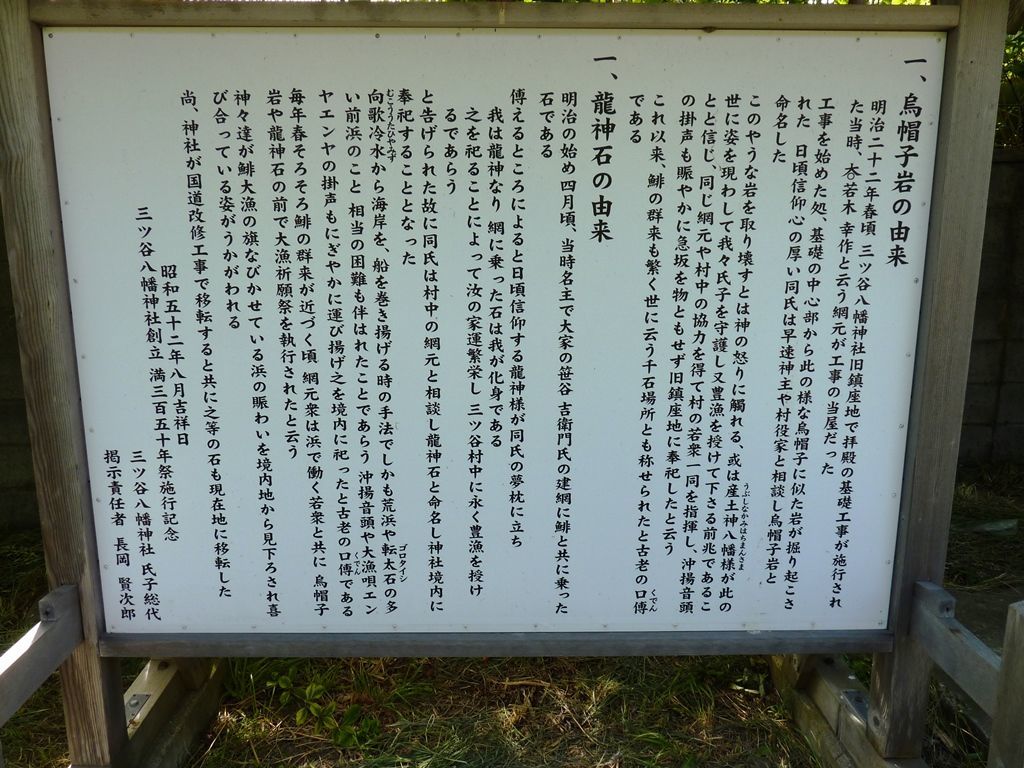 一、烏帽子岩の由来
明治二十二年春頃 三ツ谷八幡神社旧鎮座地で拝殿の基礎工事が施行され
た当時、杏若木 幸作と云う網元が工事の当屋だった
工事を始めた処、基礎の中心部から此の様な烏帽子に似た岩が掘り起こさ
れた 日頃信仰心の厚い同氏は早速神主や村役家と相談し烏帽子岩と
命名した
このやうな岩を取り壊すとは神の怒りに觸れる、或は産土神八幡様が此の
うぶしなかみはちまんさま
世に姿を現わして我々氏子を守護し又豊漁を授けて下さる前兆であるこ
とと信じ、同じ網元や村中の協力を得て村の若衆一同を指揮し、沖揚音頭
の掛声も賑やかに急坂を物ともせず旧鎮座地に奉祀したと云う
これ以来、鯡の群来も繁く世に云う千石場所とも称せられたと古老の口傳
くでん
である
一、龍神石の由来
明治の始め四月頃、当時名主で大家の笹谷 吉衛門氏の建網に鯡と共に乗った
石である
傳えるところによると日頃信仰する龍神様が同氏の夢枕に立ち
我は龍神なり 網に乗った石は我が化身である
之を祀ることによって汝の家運繁栄し 三ツ谷村中に永く豊漁を授け
るであらう
と告げられた故に同氏は村中の網元と相談し龍神石と命名し神社境内に
奉祀することとなった
向歌冷水から海岸を、船を巻き揚げる時の手法でしかも荒浜や転太石の多
むこううたひやみず
ゴロタイシ
い前浜のこと 相当の困難も伴はれたことであらう 沖揚音頭や大漁唄エン
ヤエンヤの掛声もにぎやかに運び揚げ之を境内に祀ったと古老の口傳である
くでん
毎年春そろそろ鯡の群来が近づく頃 網元衆は浜で働く若衆と共に 烏帽子
岩や龍神石の前で大漁祈願祭を執行されたと云う
神々達が鯡大漁の旗なびかせている浜の賑わいを境内地から見下ろされ喜
び合っている姿がうかがわれる
尚、神社が国道改修工事で移転すると共に之等の石も現在地に移転した
昭和五十二年八月吉祥日
三ツ谷八幡神社創立 満三百五十年祭施行記念
三ツ谷八幡神社 氏子総代
掲示責任者 長岡 賢次郎